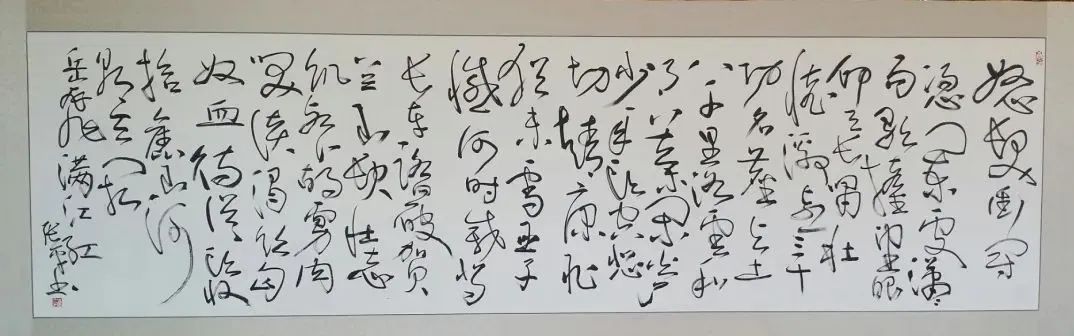 怒发冲冠
凭阑处潇潇
雨歇抬望眼
仰天长啸壮
怀激烈三十
功名尘与土
八千里路云和
月莫等闲白
少年头空悲
切靖康耻
犹未雪臣子
憾何时灭驾
长车踏破贺
兰山缺壮志
饥餐胡虏肉
笑谈渴饮匈
奴血待从头收
拾旧山河
朝天阙
岳飞满江红
书